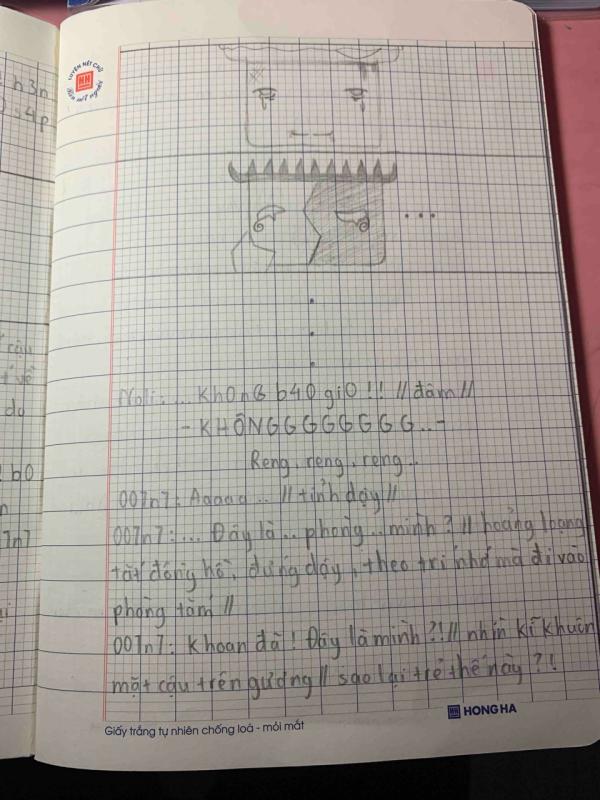 LUYỆN NẾT CHỮ
h3n
s4p
Noli: ... Kh0nG b40 gi0!! // đâm //
- KHÔNGGGGGGGG..-
Reng, reng, reng..
007n7: Aaaaa .. // tỉnh dậy //
007n7: ... Đây là .. phòng .. mình? // hoảng loạng
tắt đồng hồ, đứng dậy, theo trí nhớ mà đi vào
phòng tắm //
007n7: Khoan đã! Đây là mình?! // nhìn kĩ khuôn
mặt cậu trên gương // sao lại trẻ thế này?!
cậu
về
do
b0
7n7
Giấy trắng tự nhiên chống loá - mỏi mắt
HH HONG HA